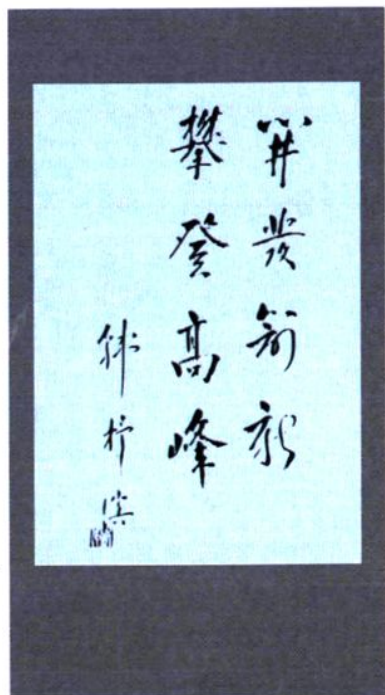 开发创新
攀登高峰
韩杼滨